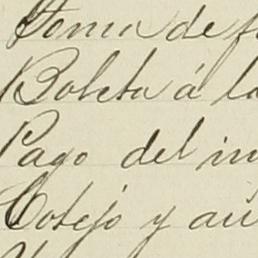 Toma de f
Boleta á la
Pago del im
Cotejo y au